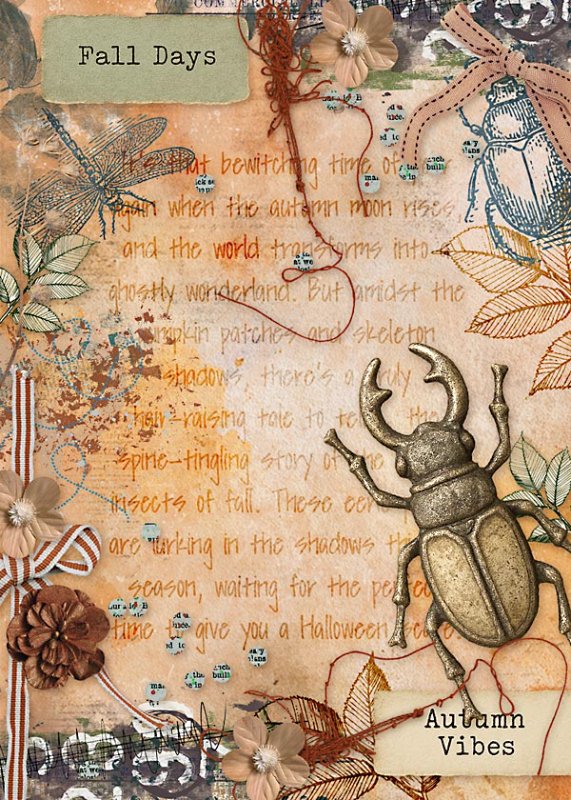 Fall Days
that bewitching time of
again when the autumn moon rises,
and the world transforms into a
ghostly wonderland. But amidst the
pumpkin patches and skeleton
shadows, there's a truly
hair-raising tale to the
spine-tingling story of the
insects of fall. These
are lurking in the shadows
season, waiting for the
time to give you a Halloween
Autumn
Vibes